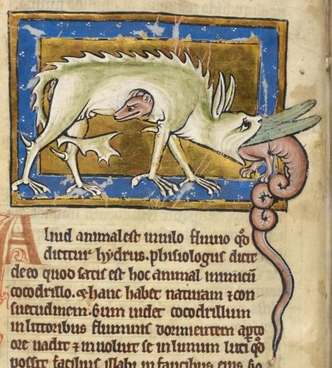 Aliud animal est in nilo fluuio q̄d
dicitur hydrus. phisiologus dicit
de eo quod satis est hoc animal inimicū
cocodrillo. ⁊ hanc habet naturam ⁊ con
suetudinem. Cum uidet cocodrillum
in littoribus fluminis dormientem apto
ore uadit ⁊ inuoluit se in limum luti q̄o
possit facilius illabi in faucibus eius